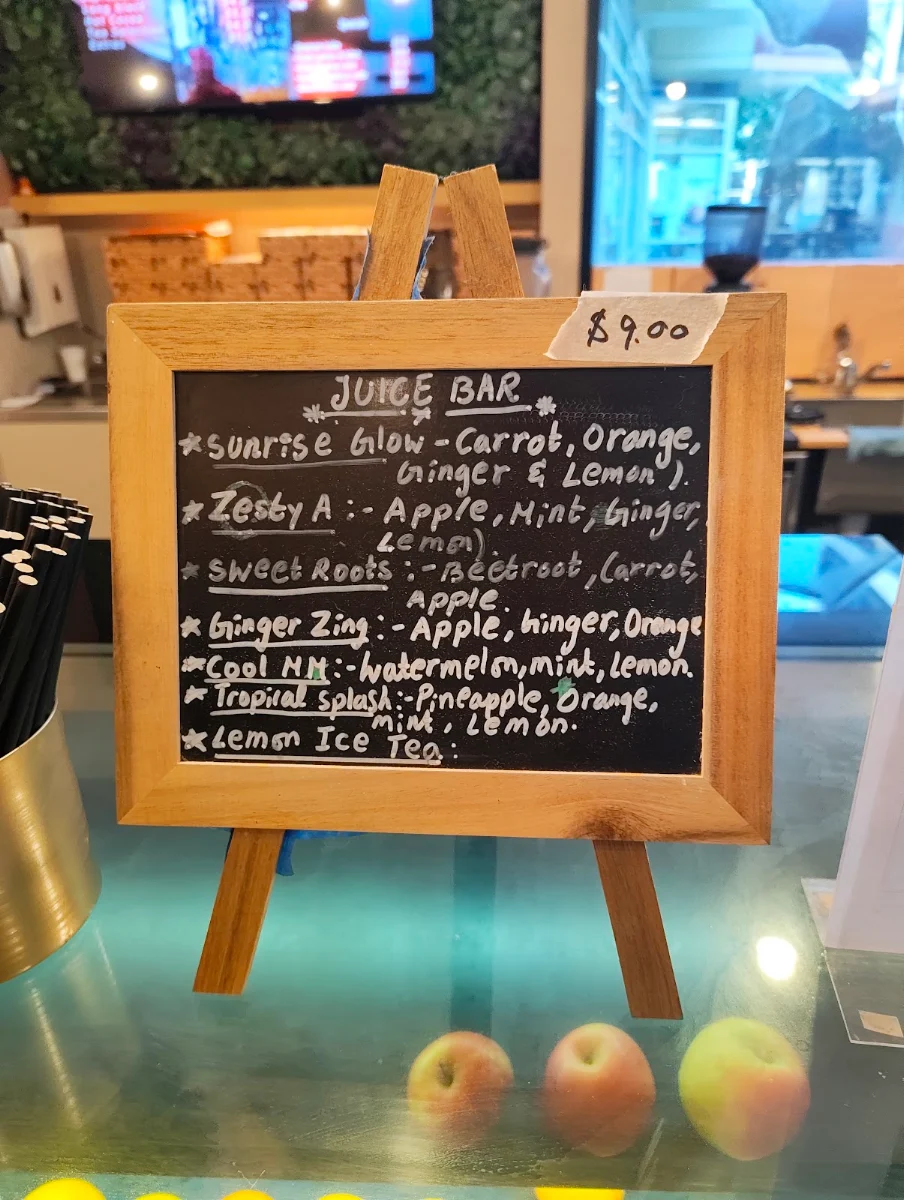 $9.00
JUICE BAR
* Sunrise Glow - Carrot, Orange,
Ginger & Lemon ).
* Zesty A :- Apple, Mint, Ginger,
Lemon)
* Sweet Roots :- Beetroot, Carrot,
Apple.
* Ginger Zing :- Apple, Ginger, Orange
* Cool NN :- Watermelon, mint, Lemon.
* Tropical splash :- Pineapple, Orange,
mint, Lemon.
* Lemon Ice Tea :